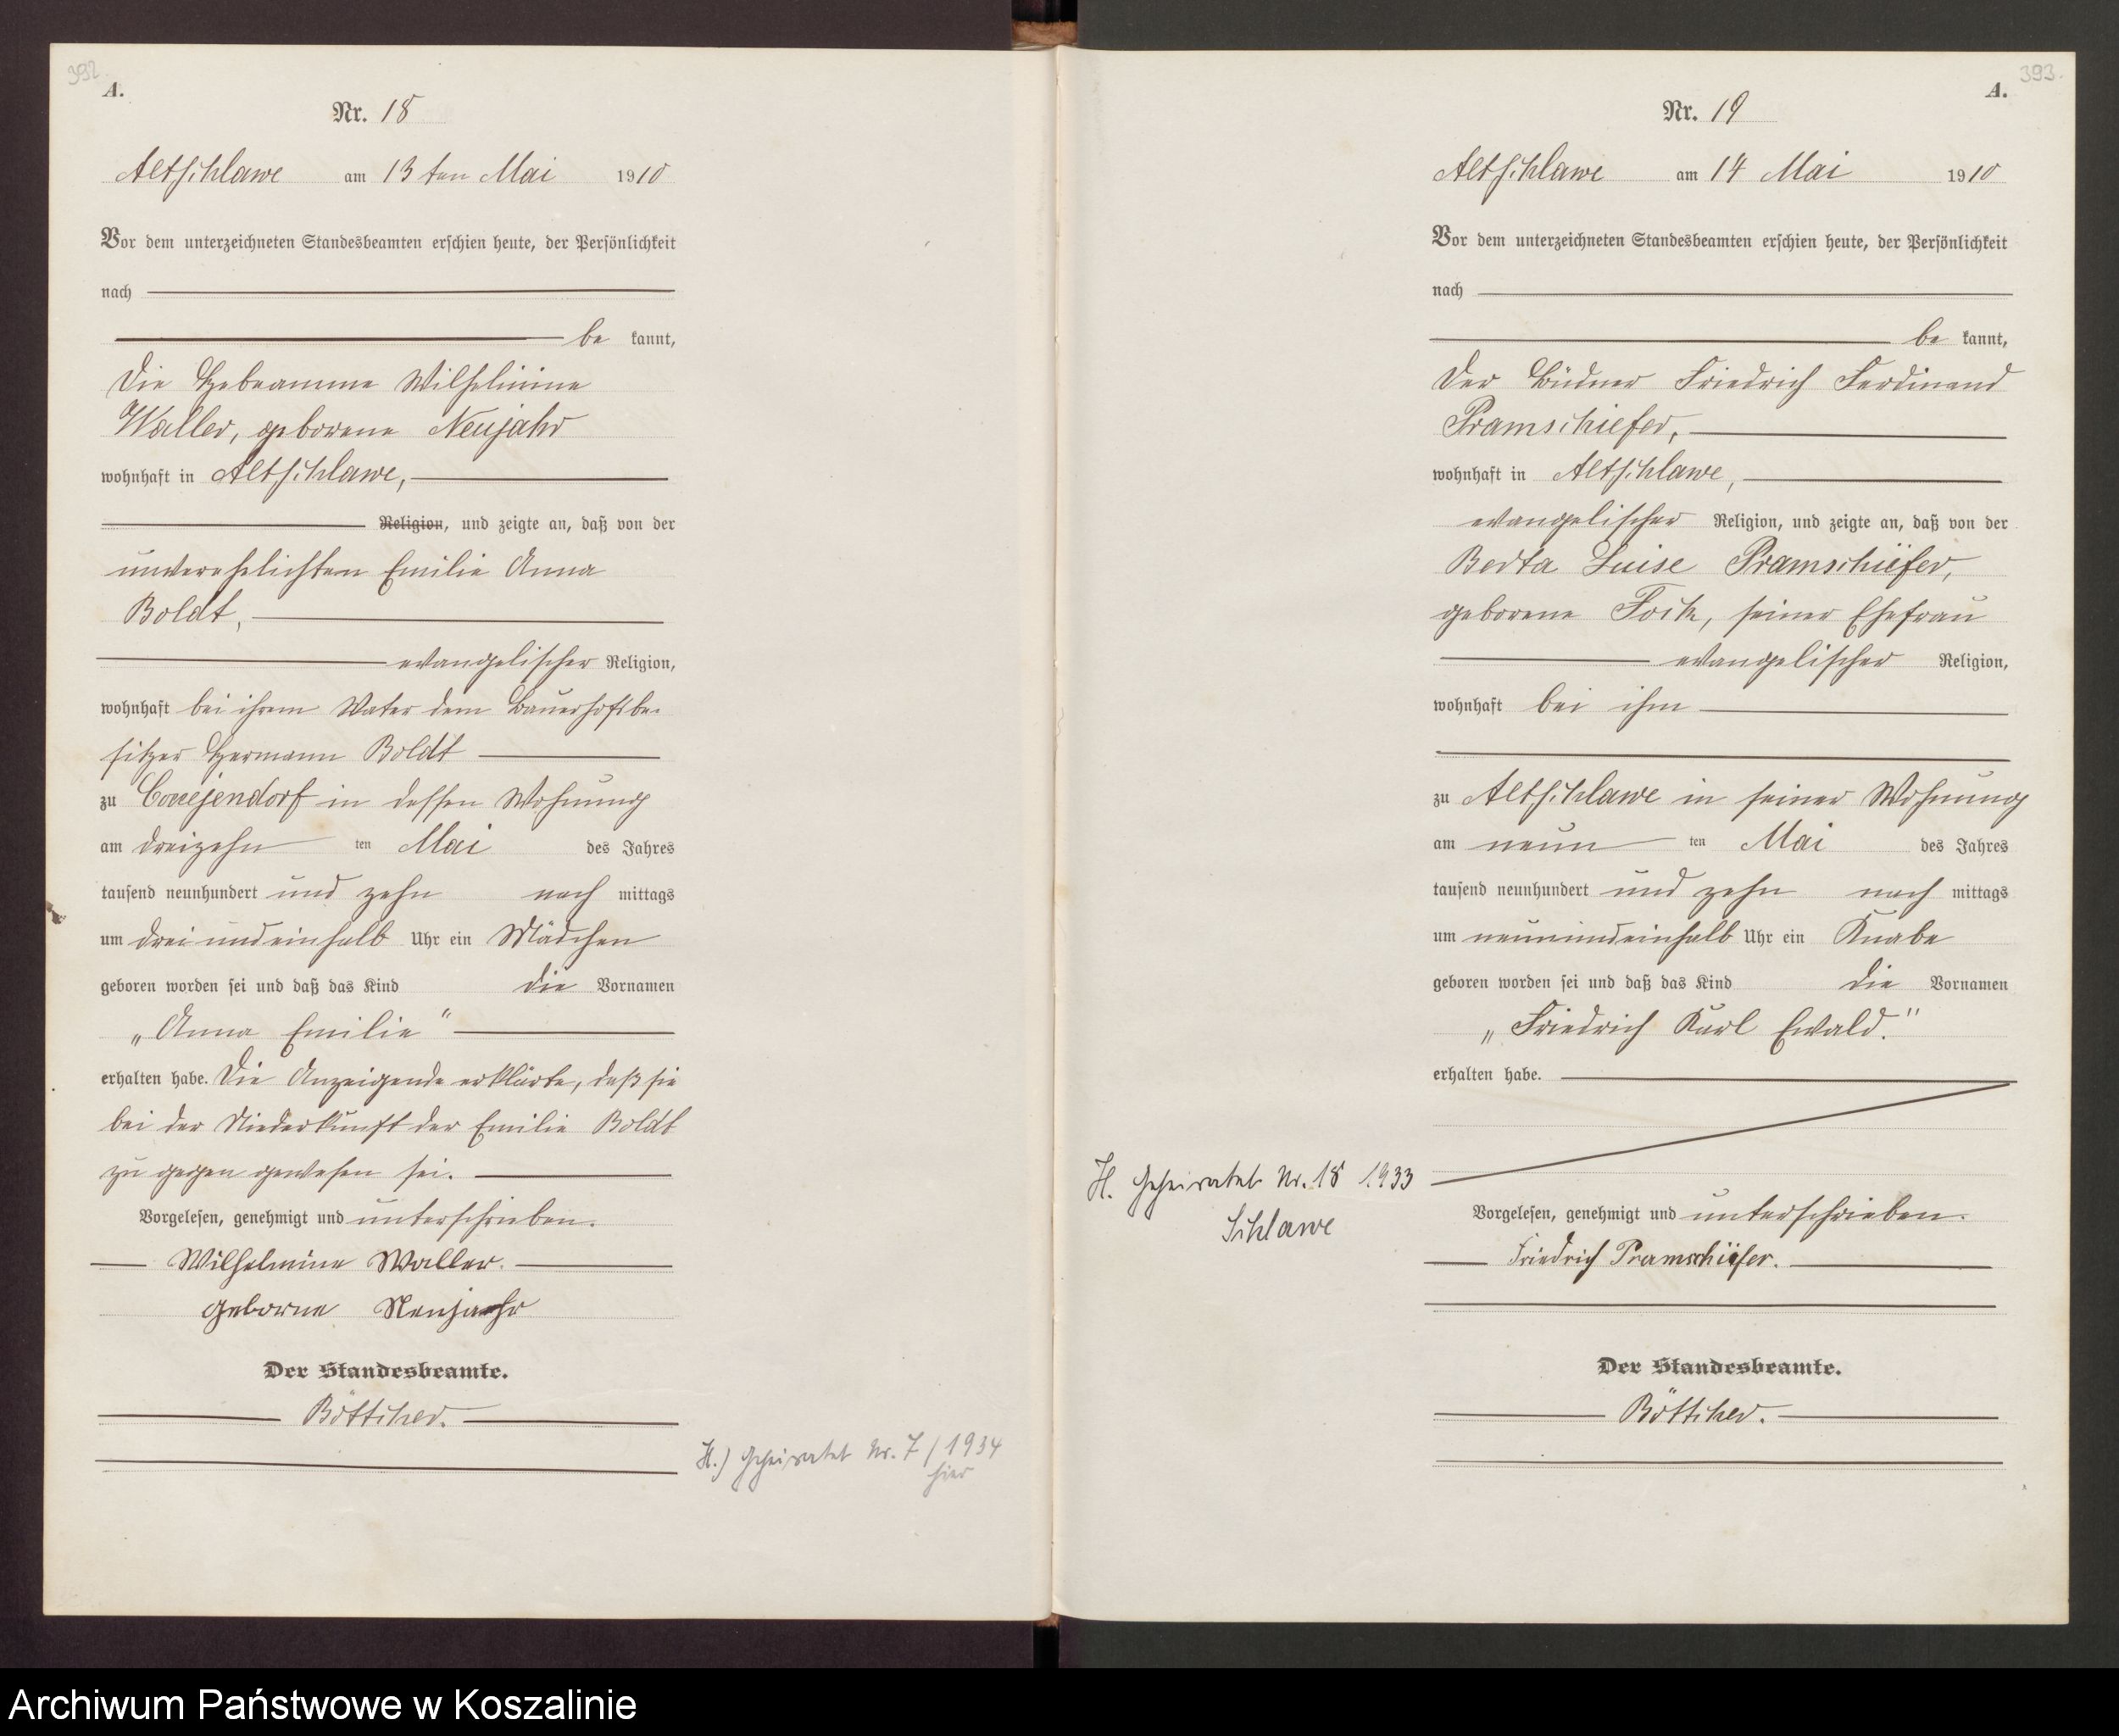 392.
A.
Nr. 18
Altschlawe am 13ten Mai 1910
Vor dem unterzeichneten Standesbeamten erschien heute, der Persönlichkeit
nach
be kannt,
die Hebeamme Wilhelmine
Waller, geborene Neujahr
wohnhaft in Altschlawe,
Religion, und zeigte an, daß von der
unverehelichten Emilie Anna
Boldt,
evangelischer Religion,
wohnhaft bei ihrem Vater dem Bauerhofsbe-
sitzer Hermann Boldt
zu Coccejendorf in dessen Wohnung
am dreizehn ten Mai des Jahres
tausend neunhundert und zehn nach mittags
um drei und einhalb Uhr ein Mädchen
geboren worden sei und daß das Kind die Vornamen
„Anna Emilie“
erhalten habe. Die Anzeigende erklärte, daß sie
bei der Niederkunft der Emilie Boldt
zu gegen gewesen sei.
Vorgelesen, genehmigt und unterschrieben.
Wilhelmine Waller.
geborne Neujaehr
Der Standesbeamte.
Böttcher.
H.) Geheiratet Nr. 7 / 1934
hier
393.
A.
Nr. 19
Altschlawe am 14 Mai 1910
Vor dem unterzeichneten Standesbeamten erschien heute, der Persönlichkeit
nach
be kannt,
der Büdner Friedrich Ferdinand
Pramschiefer,
wohnhaft in Altschlawe,
evangelischer Religion, und zeigte an, daß von der
Berta Luise Pramschiefer,
geborene Fock, seiner Ehefrau
evangelischer Religion,
wohnhaft bei ihm
zu Altschlawe in seiner Wohnung
am neun ten Mai des Jahres
tausend neunhundert und zehn nach mittags
um neunundeinhalb Uhr ein Knabe
geboren worden sei und daß das Kind die Vornamen
„Friedrich Karl Ewald.“
erhalten habe.
H. Geheiratet Nr. 18 1933
Schlawe
Vorgelesen, genehmigt und unterschrieben.
Friedrich Pramschiefer.
Der Standesbeamte.
Böttcher.
Archiwum Państwowe w Koszalinie